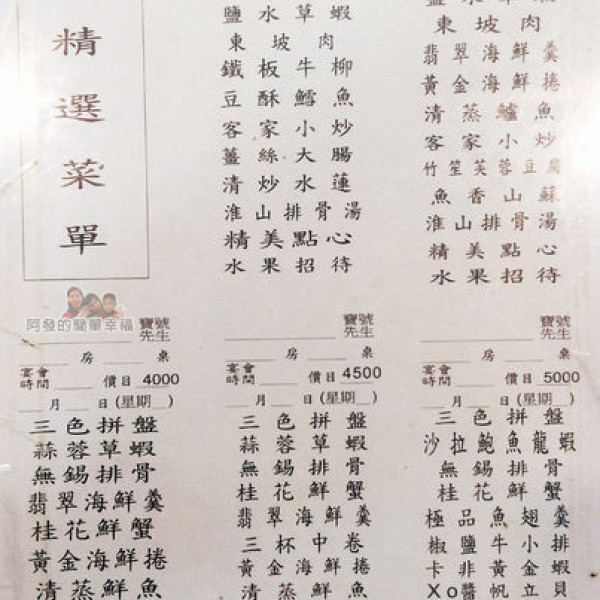 精選菜單
鹽水草蝦
東坡肉
鐵板牛柳
豆酥鱈魚
客家小炒
薑絲大腸
清炒水蓮
淮山排骨湯
精美點心
水果招待
東坡肉
翡翠海鮮羹
黃金海鮮捲
清蒸鱸魚
客家小炒
竹笙芙蓉豆腐
魚香山蘇
淮山排骨湯
精美點心
水果招待
阿發的簡單幸福
寶號
先生
房 桌
宴會時間 價目 4000
月 日(星期 )
三色拼盤
蒜蓉草蝦
無錫排骨
翡翠海鮮羹
桂花鮮蟹
黃金海鮮捲
清蒸鮮魚
寶號
先生
房 桌
宴會時間 價目 4500
月 日(星期 )
三色拼盤
蒜蓉草蝦
無錫排骨
桂花鮮蟹
翡翠海鮮羹
三杯中卷
黃金海鮮捲
清蒸鮮魚
寶號
先生
房 桌
宴會時間 價目 5000
月 日(星期 )
三色拼盤
沙拉鮑魚龍蝦
無錫排骨
桂花鮮蟹
極品魚翅羹
椒鹽牛小排
卡非黃金蝦
Xo醬帆立貝